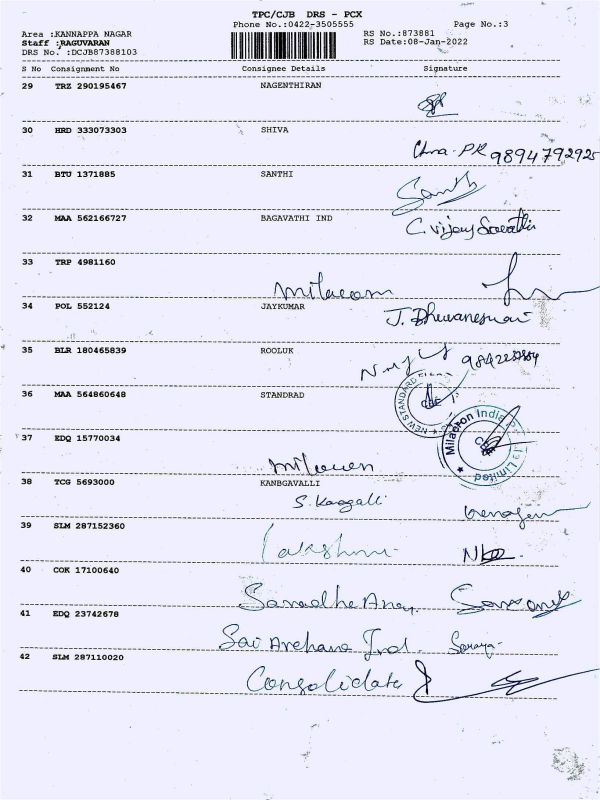 TPC/CJB DRS - PCX
Phone No.:0422-3505555 Page No.:3
Area :KANNAPPA NAGAR RS No.:873881
Staff :RAGUVARAN RS Date:08-Jan-2022
DRS No. :DCJB87388103
S No Consignment No Consignee Details Signature
29 TRZ 290195467 NAGENTHIRAN
30 HRD 333073303 SHIVA
9894792925
31 BTU 1371885 SANTHI
Santh
32 MAA 562166727 BAGAVATHI IND
C. Vijay
33 TRP 4981160
Milacom
34 POL 552124 JAYKUMAR
J. Bhuvaneswari
35 BLR 180465839 ROOLUK
36 MAA 564860648 STANDRAD
NEW STANDARD
37 EDQ 15770034
Milacron India Limited
38 TCG 5693000 KANBGAVALLI
39 SLM 287152360
Lakshmi
40 COK 17100640
41 EDQ 23742678
Sai Archana Ind.
42 SLM 287110020
Consolidate